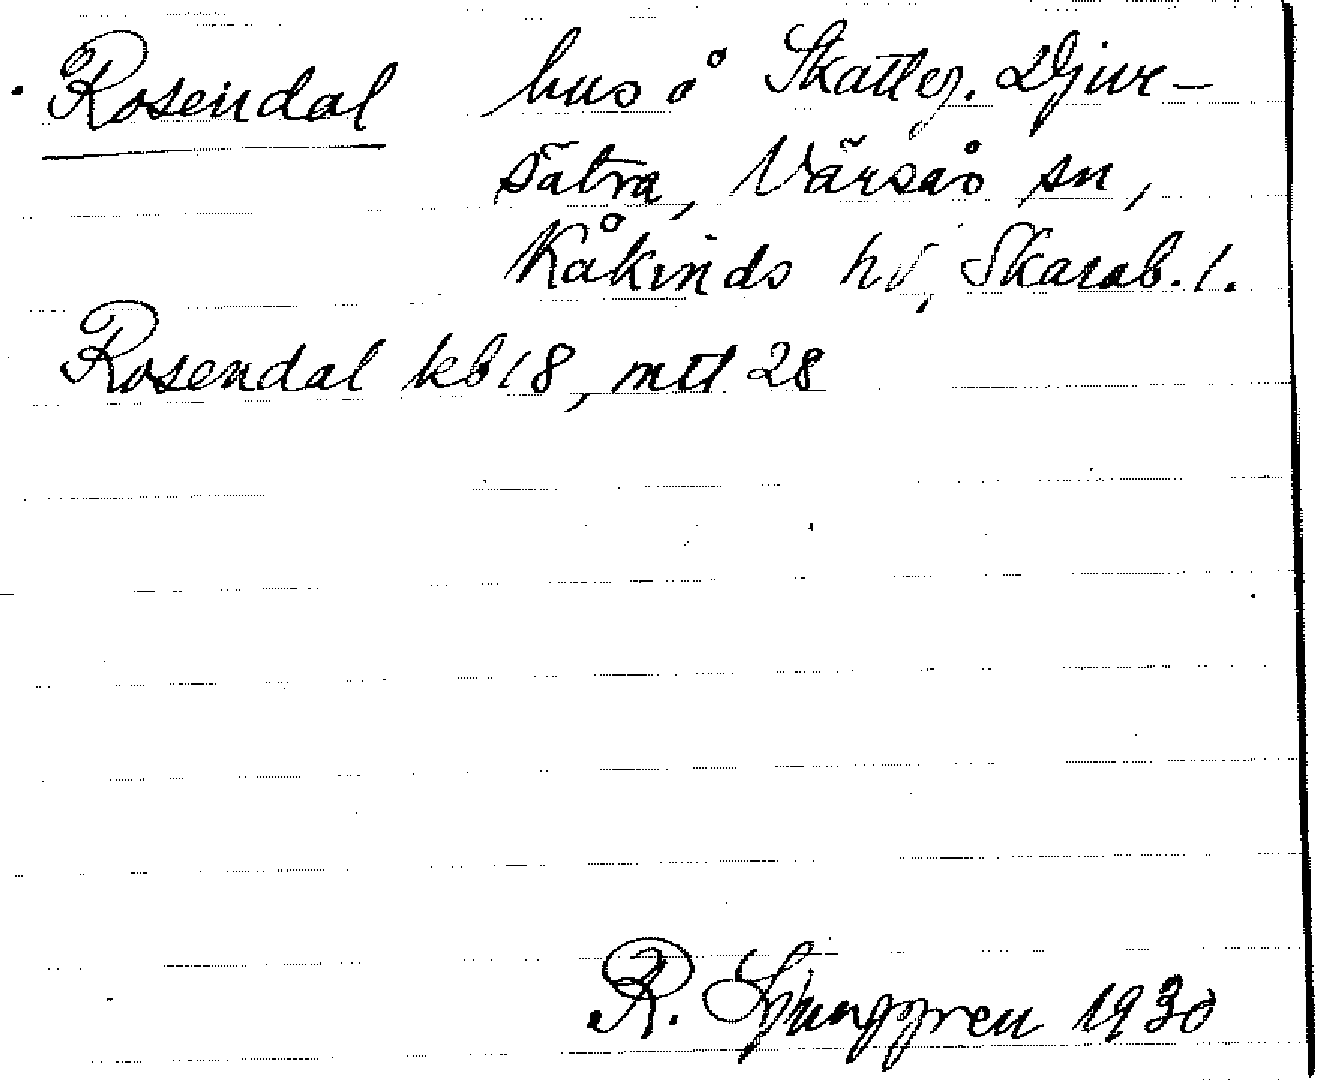 Rosendal hus å Skatteg. Djur-
sätra, Värsås sn,
Kåkinds hd, Skarab. l.
Rosendal kb 18, mtl 28
R. Ljunggren 1930